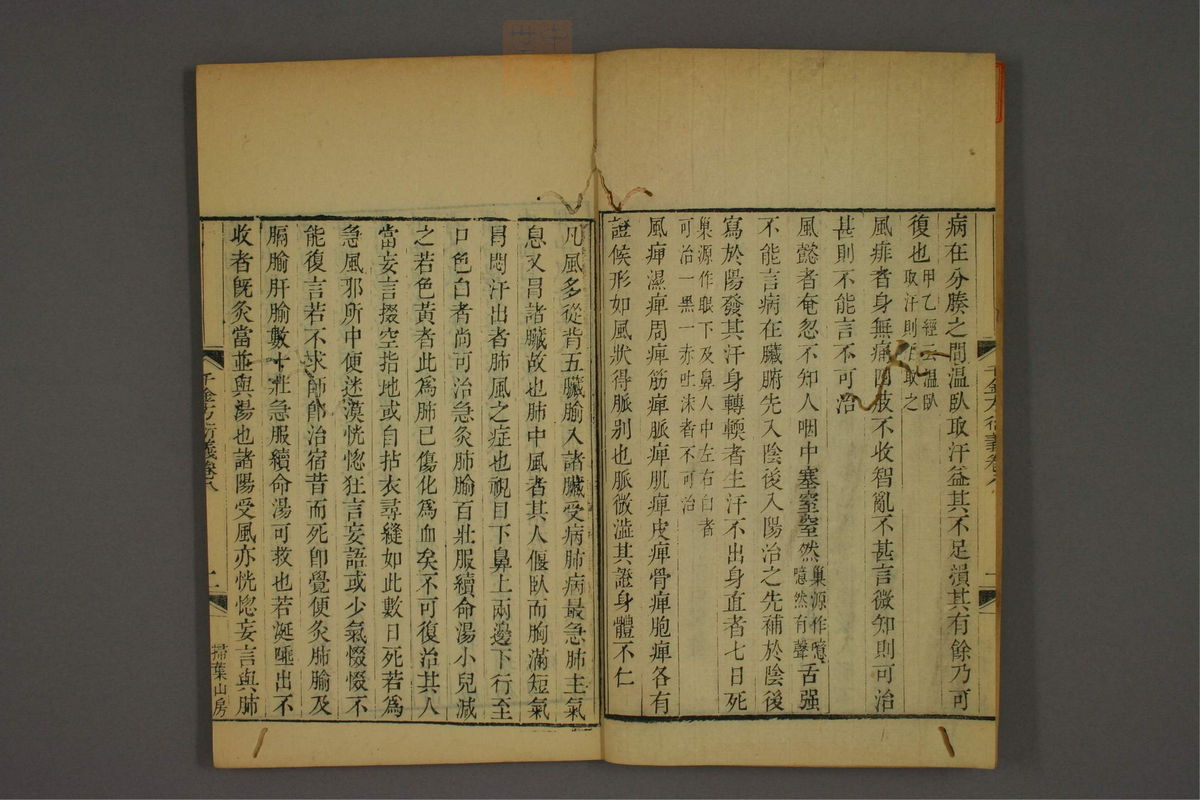 病在分腠之間温臥取汗益其不足損其有餘乃可
復也甲乙經云温臥取汗則巨取之
風痱者身無痛四肢不收智亂不甚言微知則可治
甚則不能言不可治
風懿者奄忽不知人咽中塞窒窒然巢源作噫噫然有聲舌强
不能言病在臟腑先入陰後入陽治之先補於陰後
寫於陽發其汗身轉輭者生汗不出身直者七日死
巢源作眼下及鼻人中左右白者可治一黑一赤吐沫者不可治
風痺濕痺周痺筋痺脈痺肌痺皮痺骨痺胞痺各有
證候形如風狀得脈别也脈微澁其證身體不仁
千金方衍義卷八
凡風多從背五臟腧入諸臟受病肺病最急肺主氣
息又冒諸臟故也肺中風者其人偃臥而胸滿短氣
冒悶汗出者肺風之症也視目下鼻上兩邊下行至
口色白者尚可治急灸肺腧百壯服續命湯小兒減
之若色黃者此爲肺已傷化爲血矣不可復治其人
當妄言掇空指地或自拈衣尋縫如此數日死若爲
急風邪所中便迷漠恍惚狂言妄語或少氣惙惙不
能復言若不求師卽治宿昔而死卽覺便灸肺腧及
膈腧肝腧數十壯急服續命湯可救也若涎唾出不
收者既灸當並與湯也諸陽受風亦恍惚妄言與肺
千金方衍義卷八
二
掃葉山房